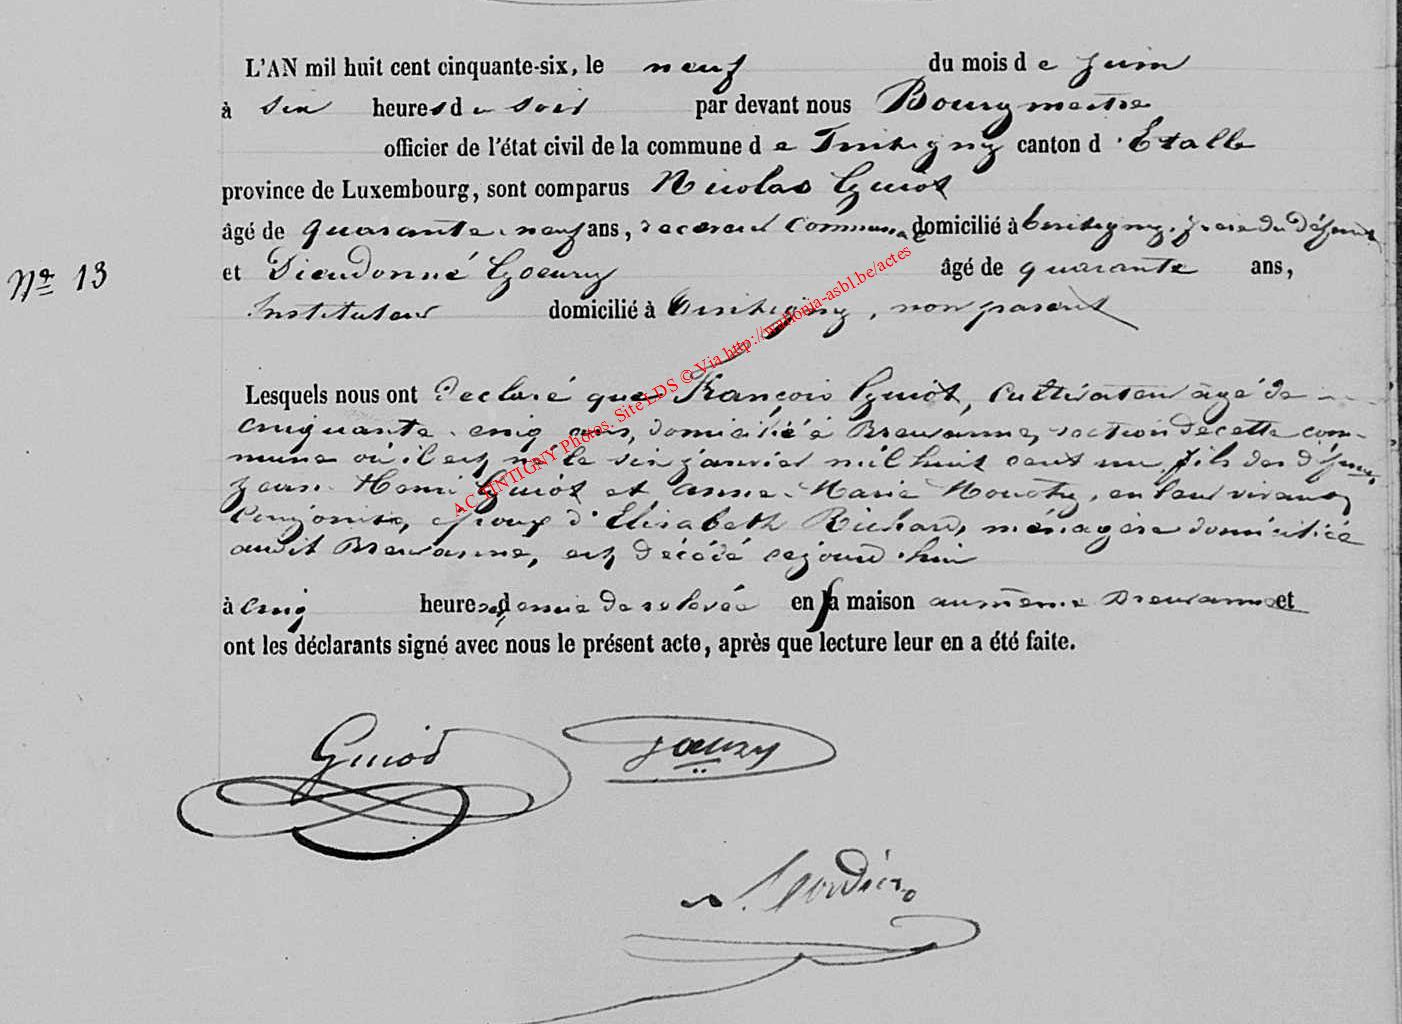 L'AN mil huit cent cinquante-six, le neuf du mois de juin
à six heures du soir par devant nous Bourgmestre
officier de l'état civil de la commune de Tintigny canton d'Etalle
province de Luxembourg, sont comparus Nicolas Guiot
âgé de quarante-neuf ans, receveur communal domicilié à Tintigny, frère du défunt
N° 13
et Dieudonné Goeury âgé de quarante ans,
Instituteur domicilié à Tintigny, non parent
AC TINTIGNY Photos. Site LDS © Via http://wallonia-asbl.be/actes
Lesquels nous ont déclaré que François Guiot, Cultivateur âgé de
cinquante-cinq ans, domicilié à Breuvanne, section de cette com-
mune où il est né le six janvier mil huit cent un, fils des défunts
Jean-Henri Guiot et Anne-Marie, en leur vivant
conjoints, époux d'Elisabeth Richard, ménagère domiciliée
audit Breuvanne, est décédé cejourd'hui
à cinq heures et demie de relevée en sa maison au même Breuvanne et
ont les déclarants signé avec nous le présent acte, après que lecture leur en a été faite.
Guiot Goeury